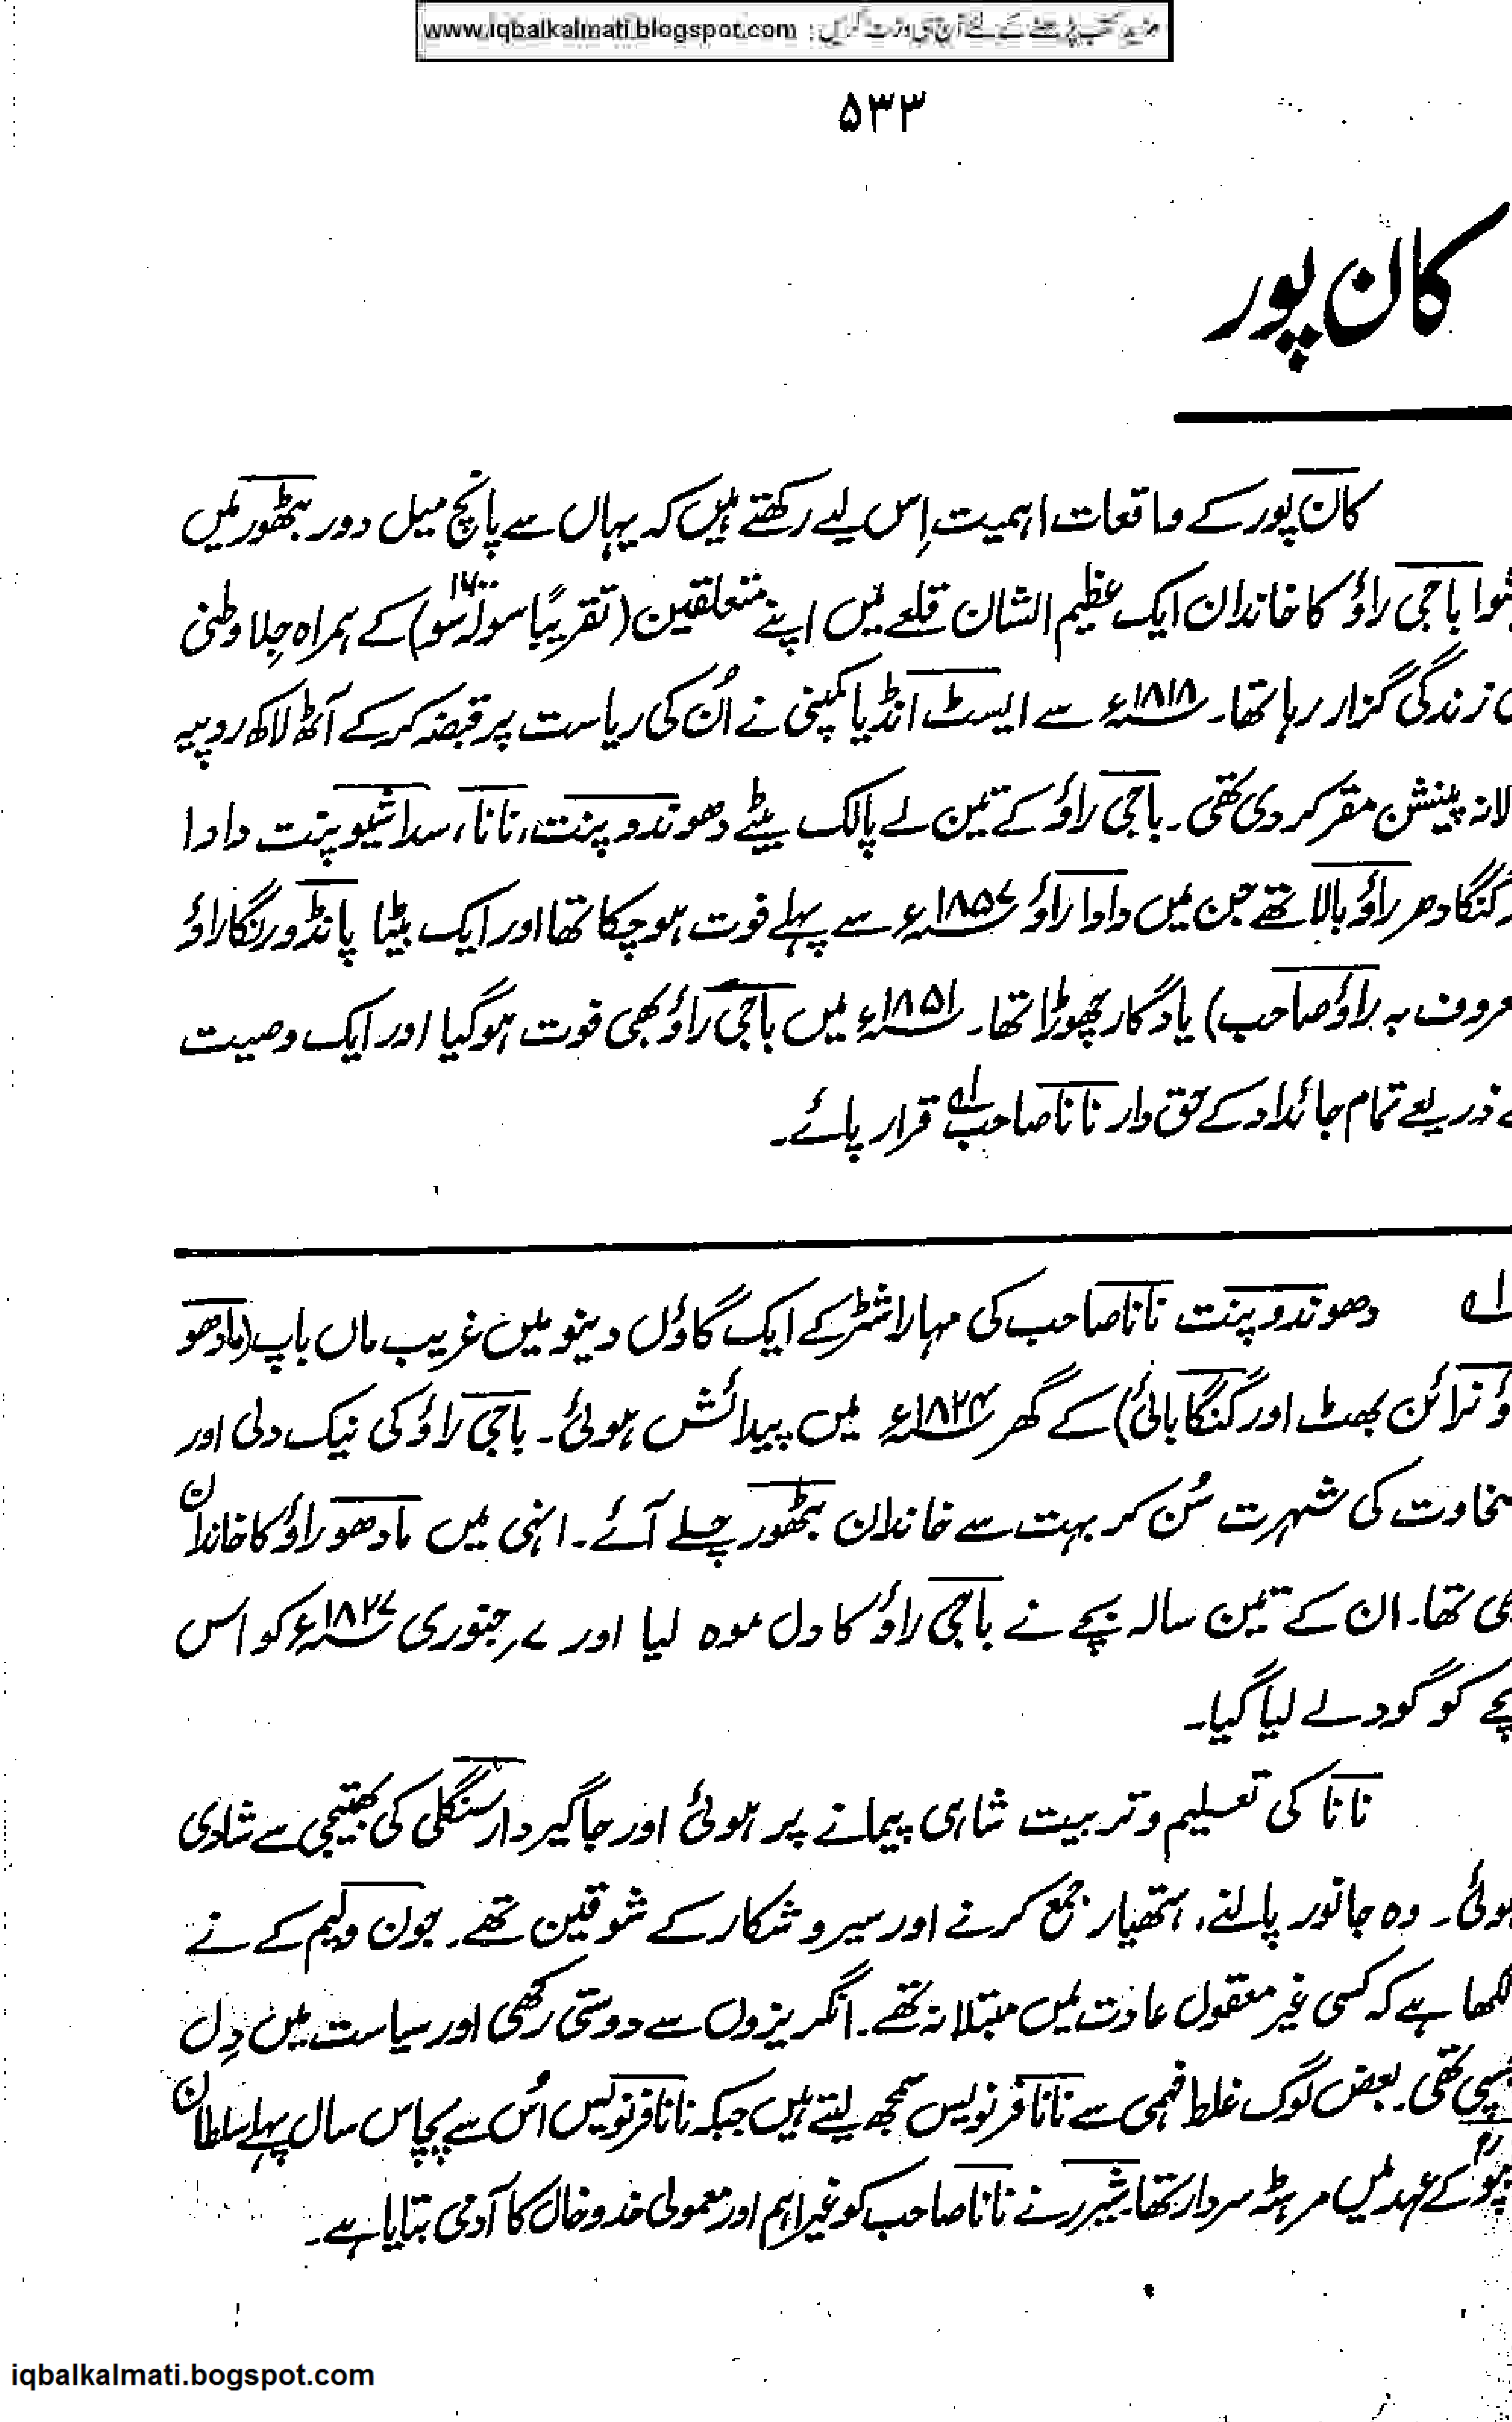 مزید کتب پڑھنے کے لئے آج ہی وزٹ کریں : www.iqbalkalmati.blogspot.com
۵۳۳
کان پور
کان پور کے واقعات اہمیت اِس لیے رکھتے ہیں کہ یہاں سے پانچ میل دور بٹھور میں
شوا باجی راؤ کا خاندان ایک عظیم الشان قلعے میں اپنے متعلقین (تقریباً سولہ سو ۱۶۰۰) کے ہمراہ جِلا وطنی
زندگی گزار رہا تھا۔ ۱۸۱۸ء سے ایسٹ انڈیا کمپنی نے اُن کی ریاست پر قبضہ کر کے آٹھ لاکھ روپیہ
لانہ پینشن مقرر کر دی تھی۔ باجی راؤ کے تین لے پالک بیٹے دھوندو پنت، نانا، سداشیو پنت دادا
گنگا دھر راؤ بالا تھے جن میں دادا راؤ ۱۸۵۷ء سے پہلے فوت ہو چکا تھا اور ایک بیٹا پانڈو رنگا راؤ
عروف بہ راؤ صاحب) یادگار چھوڑا تھا۔ ۱۸۵۱ء میں باجی راؤ بھی فوت ہو گیا اور ایک وصیت
ذریعے تمام جائداد کے حق دار نانا صاحب لہ قرار پائے۔
لہ دھوندو پنت نانا صاحب کی مہاراشٹر کے ایک گاؤں دینو میں غریب ماں باپ (مادھو
ؤ نرائن بھٹ اور گنگا بائی) کے گھر ۱۸۲۴ء میں پیدائش ہوئی۔ باجی راؤ کی نیک دلی اور
سخاوت کی شہرت سُن کر بہت سے خاندان بٹھور چلے آئے۔ انہی میں مادھو راؤ کا خاندان
ھی تھا۔ ان کے تین سالہ بچے نے باجی راؤ کا دل موہ لیا اور ۷؍جنوری ۱۸۲۷ء کو اس
بچے کو گود لے لیا گیا۔
نانا کی تعلیم و تربیت شاہی پیمانے پر ہوئی اور جاگیردار سنگلی کی بھتیجی سے شادی
ہوئی۔ وہ جانور پالنے، ہتھیار جمع کرنے اور سیر و شکار کے شوقین تھے۔ جون ولیم کے نے
لکھا ہے کہ کسی غیر معقول عادت میں مبتلا نہ تھے۔ انگریزوں سے دوستی رکھی اور سیاست میں دِل
چسپی تھی۔ بعض لوگ غلط فہمی سے نانا فرنویس سمجھ لیتے ہیں جبکہ نانا فرنویس اُس سے پچاس سال پہلے سلطان
ٹیپوؒ کے عہد میں مرہٹہ سردار تھا۔ شیرر نے نانا صاحب کو غیر اہم اور معمولی خدوخال کا آدمی بتایا ہے۔
iqbalkalmati.bogspot.com